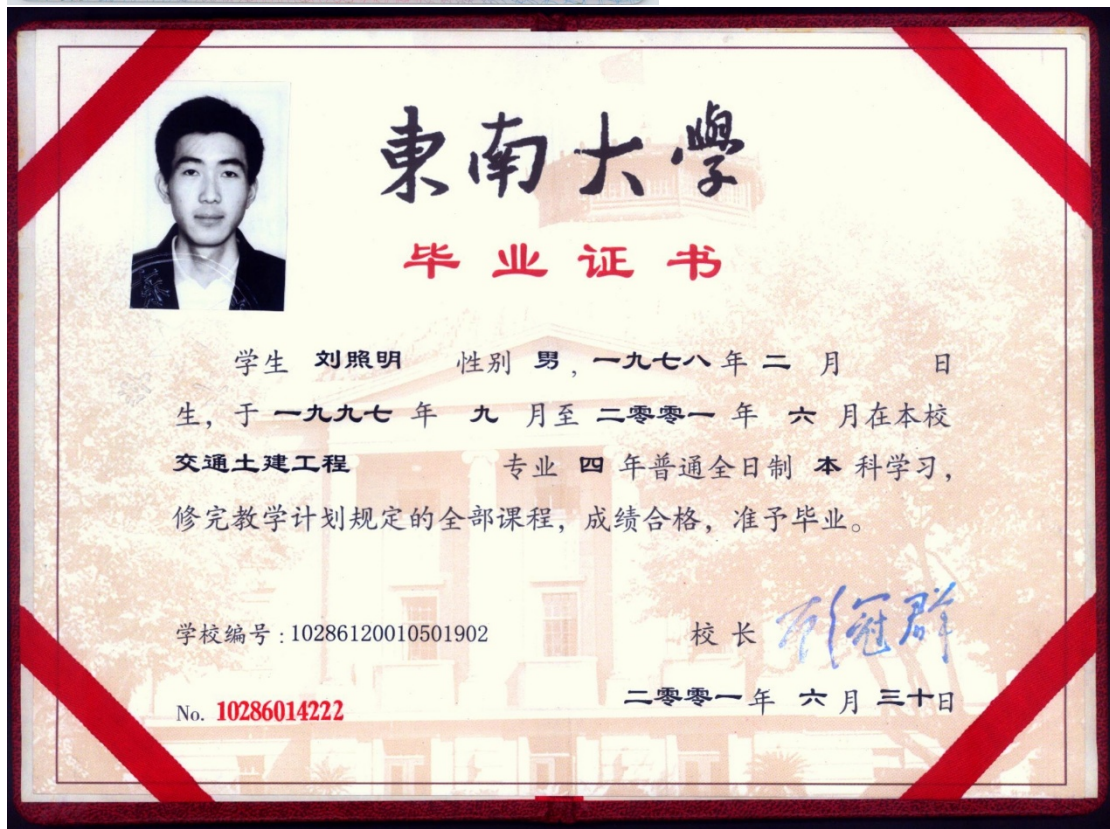 東南大學
毕业证书
学生 刘照明 性别 男，一九七八年 二 月 日
生，于 一九九七 年 九 月至 二零零一 年 六 月在本校
交通土建工程 专业 四 年普通全日制 本 科学习，
修完教学计划规定的全部课程，成绩合格，准予毕业。
学校编号：10286120010501902
校长 顾冠群
No. 10286014222
二零零一年 六 月 三十日